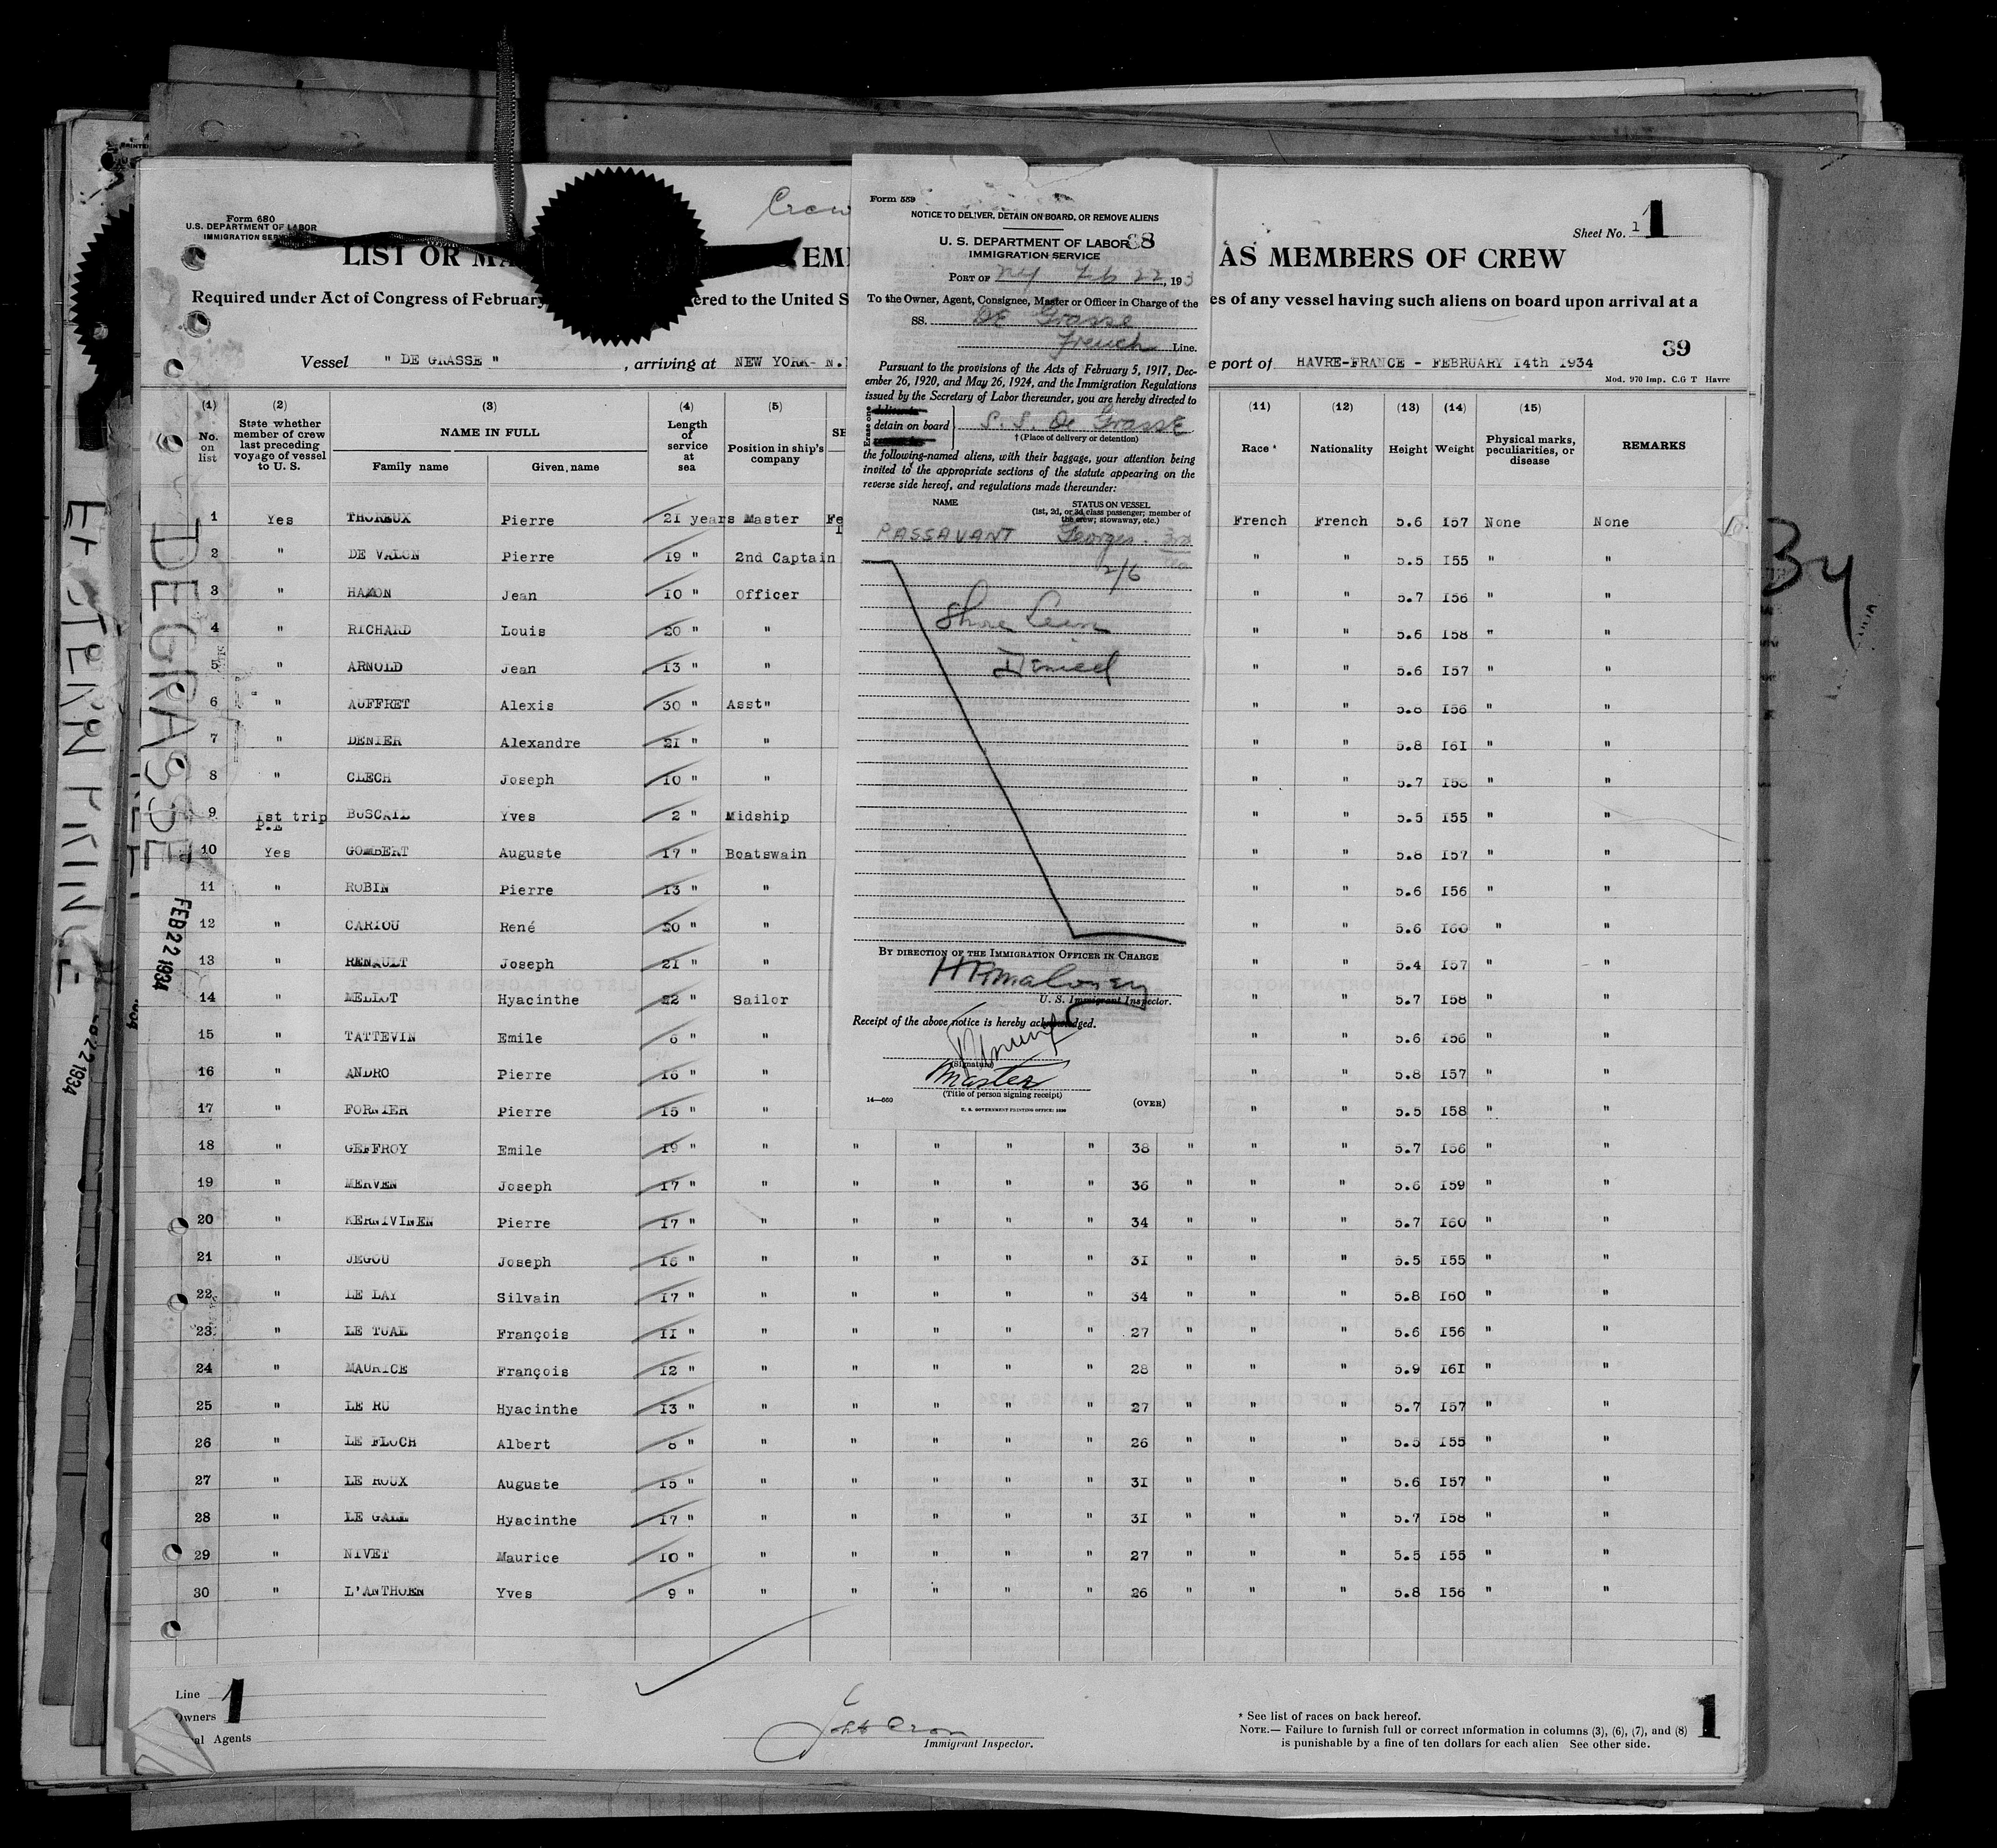 Form 680
U.S. DEPARTMENT OF LABOR
IMMIGRATION SERVICE
Crew
Sheet No. 1 1
LIST OR MA EMI AS MEMBERS OF CREW
Required under Act of Congress of February ered to the United S es of any vessel having such aliens on board upon arrival at a
39
Vessel " DE GRASSE " , arriving at NEW YORK- N. e port of HAVRE-FRANCE - FEBRUARY 14th 1934
Mod. 970 Imp. C.G T Havre
(1) (2) (3) (4) (5) (11) (12) (13) (14) (15)
No. on list State whether member of crew last preceding voyage of vessel to U. S. NAME IN FULL Family name Given name Length of service at sea Position in ship's company SH Race * Nationality Height Weight Physical marks, peculiarities, or disease REMARKS
1 Yes THOREUX Pierre 21 years Master Fe French French 5.6 157 None None
2 " DE VALON Pierre 19 " 2nd Captain " " 5.5 155 " "
3 " HAMON Jean 10 " Officer " " 5.7 156 " "
4 " RICHARD Louis 20 " " " " 5.6 158 " "
5 " ARNOLD Jean 13 " " " " 5.6 157 " "
6 " AUFFRET Alexis 30 " Asst" " " 5.8 156 " "
7 " DENIER Alexandre 21 " " " " 5.8 161 " "
8 " CLECH Joseph 10 " " " " 5.7 158 " "
9 1st trip P.E BUSCAIL Yves 2 " Midship " " 5.5 155 " "
10 Yes GOMBERT Auguste 17 " Boatswain " " 5.8 157 " "
11 " ROBIN Pierre 13 " " " " 5.6 156 " "
12 " CARIOU René 20 " " " " 5.6 160 " "
13 " RENAULT Joseph 21 " " " " 5.4 157 " "
14 " MELLOT Hyacinthe 22 " Sailor " " 5.7 158 " "
15 " TATTEVIN Emile 6 " " " " 5.6 156 " "
16 " ANDRO Pierre 16 " " " " 5.8 157 " "
17 " FORNIER Pierre 15 " " " " 5.5 158 " "
18 " GEFFROY Emile 19 " " " " " " 38 " " " 5.7 156 " "
19 " MERVEN Joseph 17 " " " " " " 36 " " " 5.6 159 " "
20 " KERNIVINEN Pierre 17 " " " " " " 34 " " " 5.7 160 " "
21 " JEGOU Joseph 16 " " " " " " 31 " " " 5.5 155 " "
22 " LE LAY Silvain 17 " " " " " " 34 " " " 5.8 160 " "
23 " LE TUAL François 11 " " " " " " 27 " " " 5.6 156 " "
24 " MAURICE François 12 " " " " " " 28 " " " 5.9 161 " "
25 " LE RU Hyacinthe 13 " " " " " " 27 " " " 5.7 157 " "
26 " LE FLOCH Albert 8 " " " " " " 26 " " " 5.5 155 " "
27 " LE ROUX Auguste 15 " " " " " " 31 " " " 5.6 157 " "
28 " LE GALL Hyacinthe 17 " " " " " " 31 " " " 5.7 158 " "
29 " NIVET Maurice 10 " " " " " " 27 " " " 5.5 155 " "
30 " L'ANTHOEN Yves 9 " " " " " " 26 " " " 5.8 156 " "
Line 1
Owners
al Agents
Immigrant Inspector.
* See list of races on back hereof.
NOTE.— Failure to furnish full or correct information in columns (3), (6), (7), and (8)
is punishable by a fine of ten dollars for each alien See other side.
1
Form 559
NOTICE TO DELIVER, DETAIN ON BOARD, OR REMOVE ALIENS
U. S. DEPARTMENT OF LABOR 38
IMMIGRATION SERVICE
PORT OF NY Feb 22, 193
To the Owner, Agent, Consignee, Master or Officer in Charge of the
SS. DE Grasse
French Line.
Pursuant to the provisions of the Acts of February 5, 1917, Dec-
ember 26, 1920, and May 26, 1924, and the Immigration Regulations
issued by the Secretary of Labor thereunder, you are hereby directed to
Erase one
detain on board S. S. De GrassE
† (Place of delivery or detention)
the following-named aliens, with their baggage, your attention being
invited to the appropriate sections of the statute appearing on the
reverse side hereof, and regulations made thereunder:
NAME STATUS ON VESSEL
(1st, 2d, or 3d class passenger; member of
the crew; stowaway, etc.)
PASSAVANT Georges. 3rd
2/6
Shore Leave
Denied
BY DIRECTION OF THE IMMIGRATION OFFICER IN CHARGE
HRMaloney
U. S. Immigrant Inspector.
Receipt of the above notice is hereby acknowledged.
(Signature)
Master
(Title of person signing receipt)
14—660
U. S. GOVERNMENT PRINTING OFFICE:
(OVER)
DEGRASSE
FEB 22 1934
34
WESTERN PRINCE
22 1934